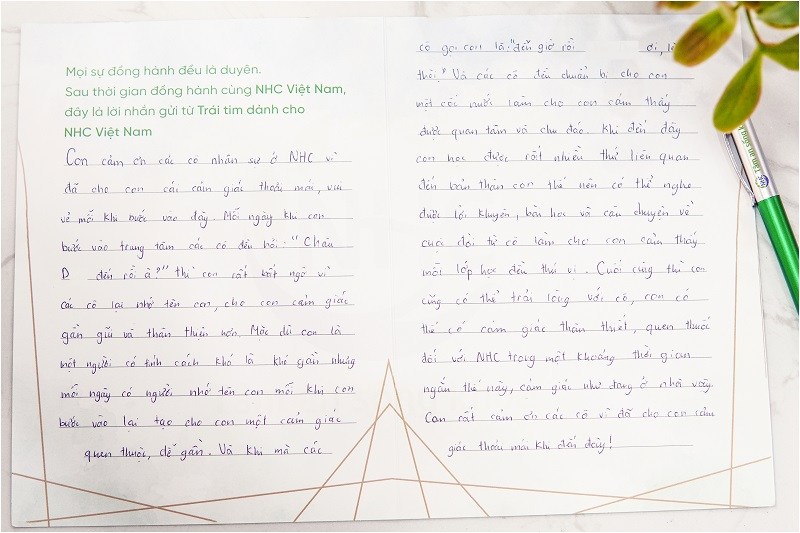 Mọi sự đồng hành đều là duyên.
Sau thời gian đồng hành cùng NHC Việt Nam,
đây là lời nhắn gửi từ Trái tim dành cho
NHC Việt Nam
Con cảm ơn các cô nhân sự ở NHC vì
đã cho con cái cảm giác thoải mái, vui
vẻ mỗi khi bước vào đây. Mỗi ngày khi con
bước vào trung tâm các cô đến hỏi: "Chào
D đến rồi à?" thì con rất bất ngờ vì
các cô lại nhớ tên con, cho con cảm giác
gần gũi và thân thiện hơn. Mặc dù con là
một người có tính cách khó là khó gần nhưng
mỗi ngày có người nhớ tên con mỗi khi con
bước vào lại tạo cho con một cảm giác
quen thuộc, dễ gần. Và khi mà các
cô gọi con là: "đến giờ rồi ơi, lên
thôi" Và các cô đều chuẩn bị cho con
một cốc nước làm cho con cảm thấy
được quan tâm và chu đáo. Khi đến đây
con học được rất nhiều thứ liên quan
đến bản thân con thế nên có thể nghe
được lời khuyên, bài học và câu chuyện về
cuộc đời từ cô làm cho con cảm thấy
mỗi lớp học đều thú vị. Cuối cùng thì con
cũng có thể trải lòng với cô, con có
thể có cảm giác thân thiết, quen thuộc
đối với NHC trong một khoảng thời gian
ngắn thế này, cảm giác như đang ở nhà vậy.
Con rất cảm ơn các cô vì đã cho con cảm
giác thoải mái khi đến đây!